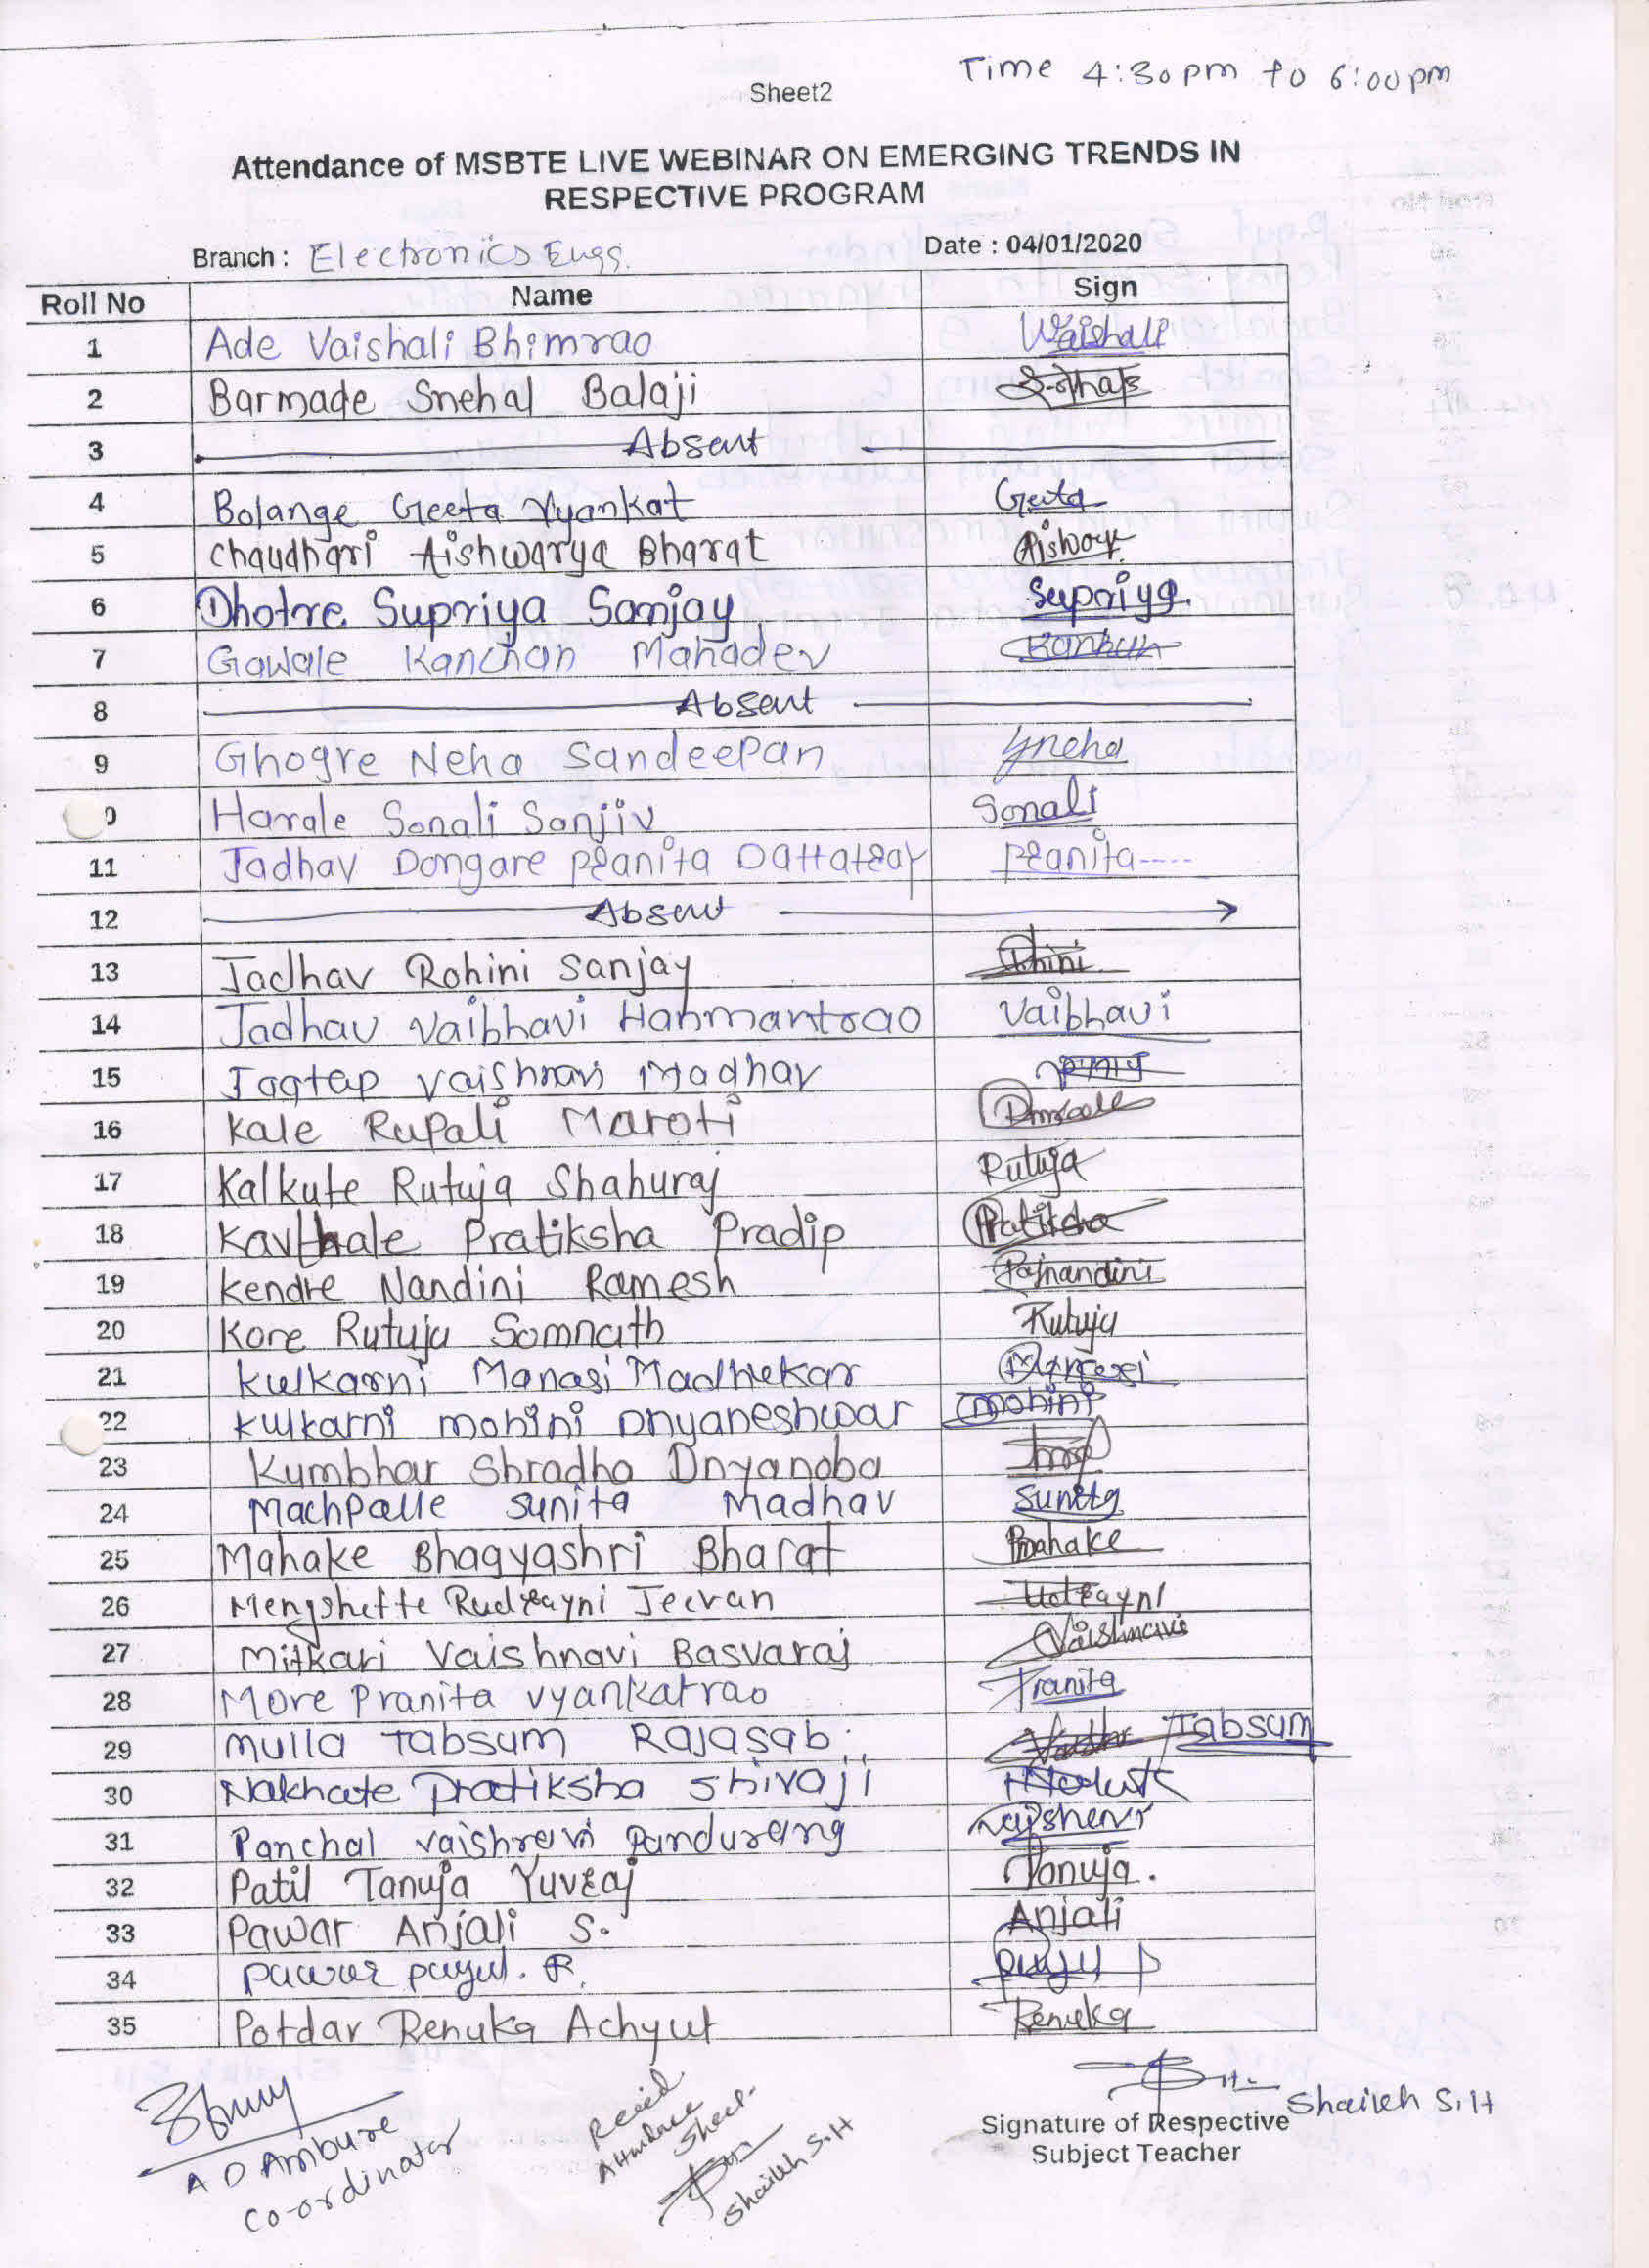 Time 4:30pm to 6:00pm
Sheet2
Attendance of MSBTE LIVE WEBINAR ON EMERGING TRENDS IN
RESPECTIVE PROGRAM
Branch : Electronics Engg. Date : 04/01/2020
Roll No Name Sign
1 Ade Vaishali Bhimrao Vaishali
2 Barmade Snehal Balaji
3 Absent
4 Bolange Geeta Vyankat Geeta
5 Chaudhari Aishwarya Bharat
6 Dhotre Supriya Sanjay Supriya.
7 Gawale Kanchan Mahadev
8 Absent
9 Ghogre Neha Sandeepan Yneha
Harale Sonali Sanjiv Sonali
11 Jadhav Dongare Pranita Dattatray Pranita----
12 Absent
13 Jadhav Rohini Sanjay
14 Jadhav Vaibhavi Hanmantrao Vaibhavi
15 Jagtap Vaishnavi Madhav
16 Kale Rupali Maroti
17 Kalkute Rutuja Shahuraj Rutuja
18 Kavthale Pratiksha Pradip Pratiksha
19 Kendre Nandini Ramesh Rajnandini
20 Kore Rutuja Somnath Rutuja
21 Kulkarni Manasi Madhukar
22 Kulkarni Mohini Dnyaneshwar Mohini
23 Kumbhar Shradha Dnyanoba
24 Machpalle Sunita Madhav Sunita
25 Mahake Bhagyashri Bharat Bmahake
26 Mengshette Rudrayni Jeevan
27 Mitkari Vaishnavi Basvaraj Vaishnavi
28 More Pranita Vyankatrao Pranita
29 Mulla Tabsum Rajasab Tabsum
30 Nakhate Pratiksha Shivaji
31 Panchal Vaishnavi Pandurang
32 Patil Tanuja Yuvraj Tanuja.
33 Pawar Anjali S. Anjali
34 Pawar Payal. R.
35 Potdar Renuka Achyut Renuka
A D Ambure
Co-ordinator
Attendance
Sheet
Shaikh S.H
Shaikh S.H
Signature of Respective
Subject Teacher